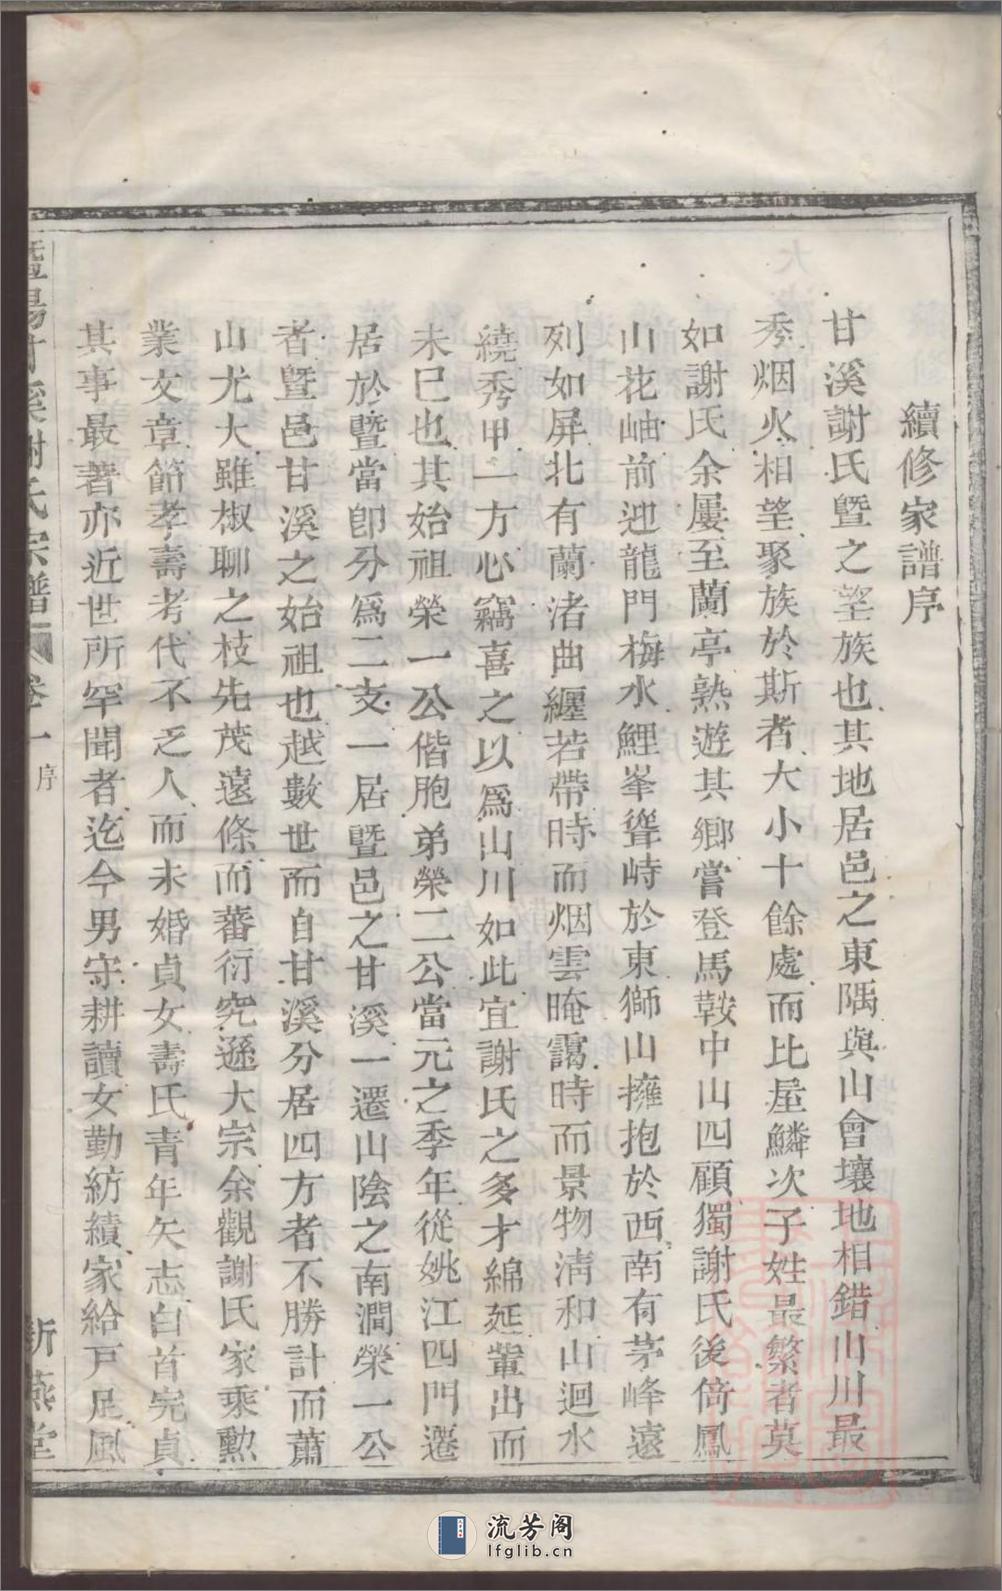 續修家譜序
甘溪謝氏暨之望族也其地居邑之東隅與山會壤地相錯山川最
秀烟火相望聚族於斯者大小十餘處而比屋鱗次子姓最繁者莫
如謝氏余屢至蘭亭熟遊其鄉嘗登馬鞍中山四顧獨謝氏後倚鳳
山花岫前迎龍門梅水鯉峯聳峙於東獅山擁抱於西南有茅峰遠
列如屏北有蘭渚曲纏若帶時而烟雲晻靄時而景物淸和山迴水
繞秀甲一方心竊喜之以爲山川如此宜謝氏之多才綿延輩出而
未已也其始祖榮一公偕胞弟榮二公當元之季年從姚江四門遷
居於暨當卽分爲二支一居暨邑之甘溪一遷山陰之南澗榮一公
者暨邑甘溪之始祖也越數世而自甘溪分居四方者不勝計而蕭
山尤大雖椒聊之枝先茂遠條而蕃衍究遜大宗余觀謝氏家乘勳
業文章節孝壽考代不乏人而未婚貞女壽氏青年矢志白首完貞
其事最著亦近世所罕聞者迄今男守耕讀女勤紡績家給戸足風
暨陽甘溪謝氏宗譜 卷一 序 新燕堂
流芳阁
lfglib.cn